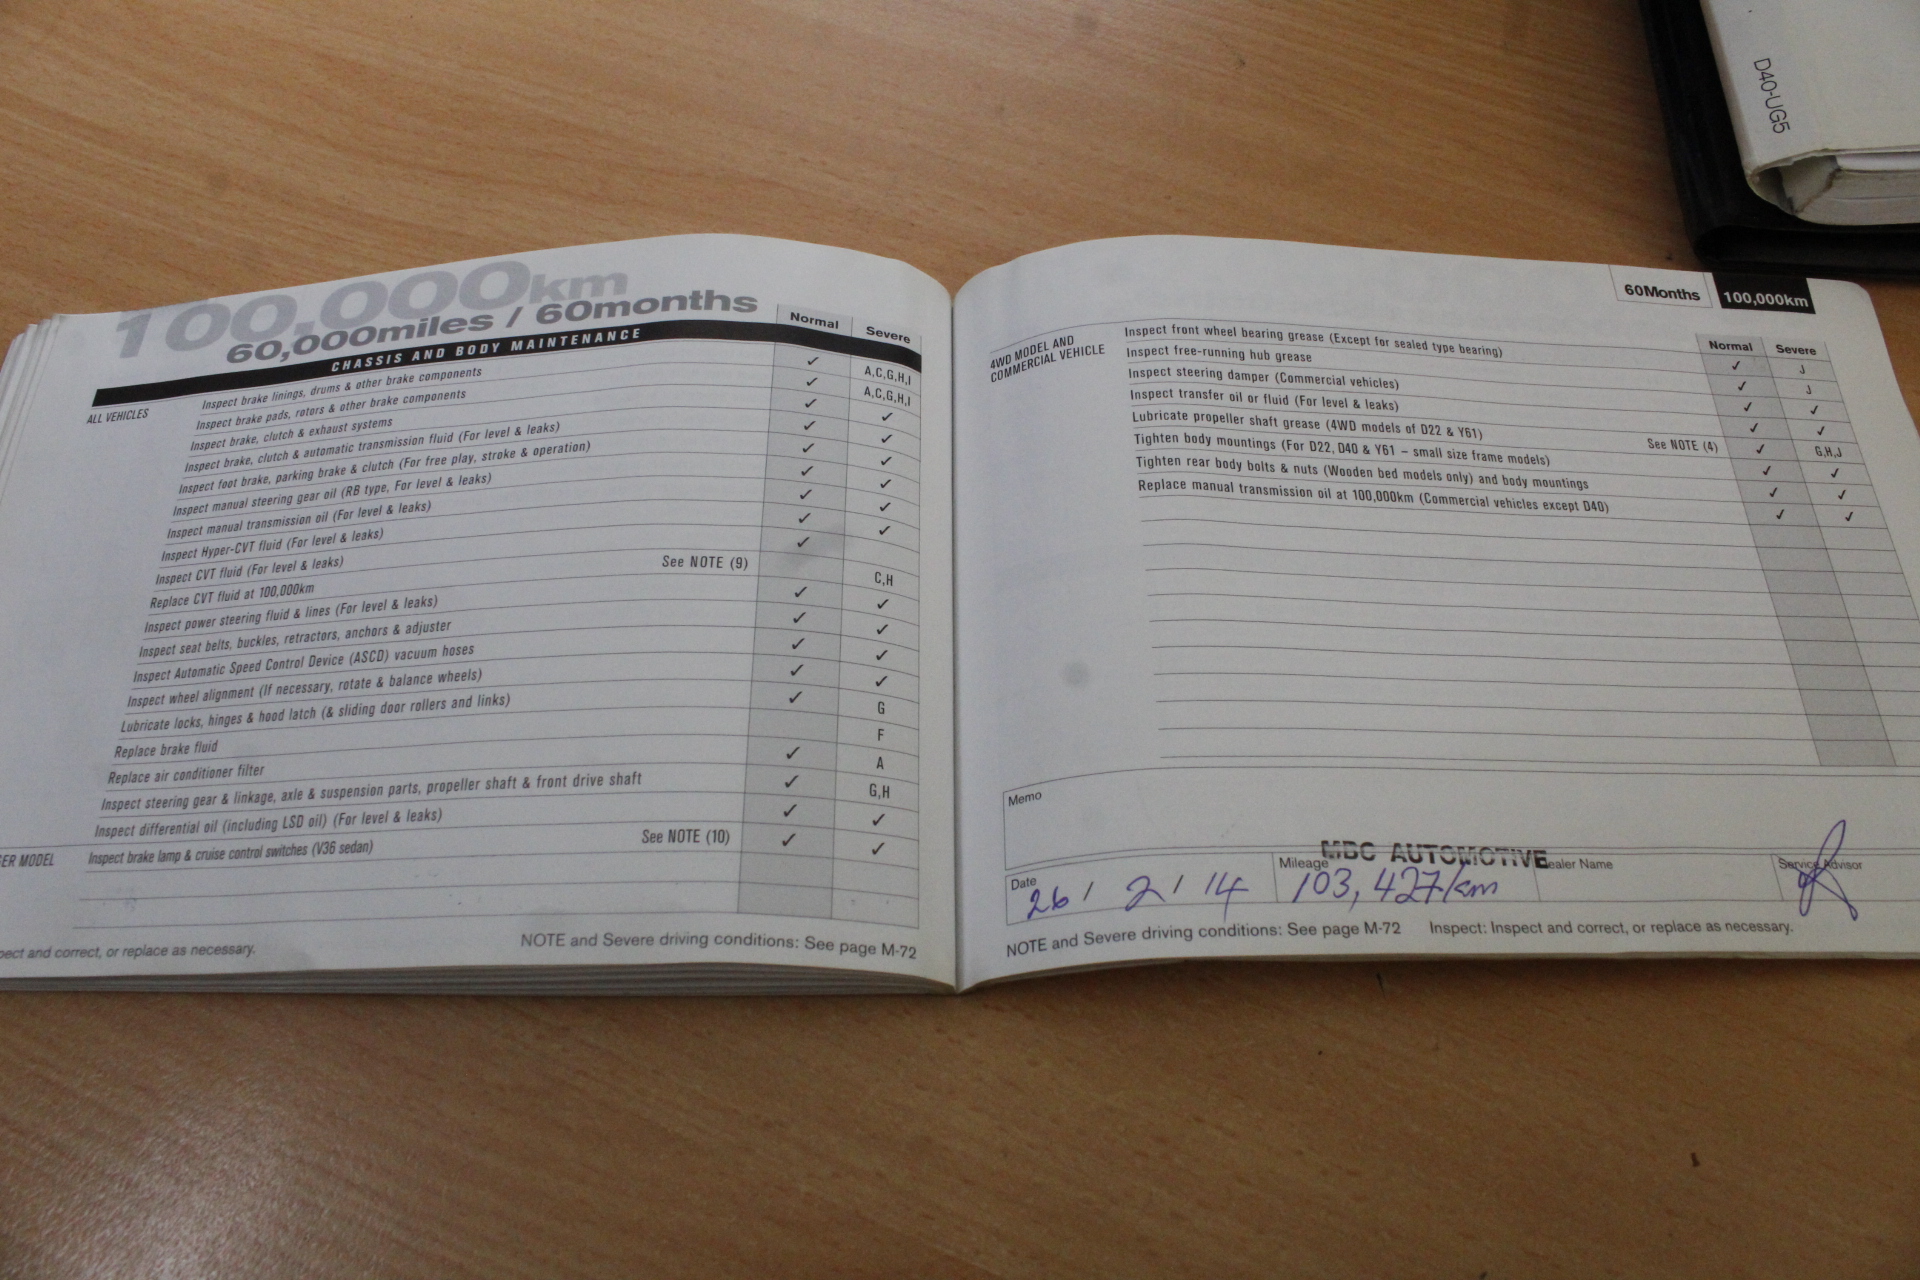 D40-UG5
100,000km
60,000miles / 60months
Normal Severe
CHASSIS AND BODY MAINTENANCE
ALL VEHICLES
Inspect brake linings, drums & other brake components ✓ A,C,G,H,I
Inspect brake pads, rotors & other brake components ✓ A,C,G,H,I
Inspect brake, clutch & exhaust systems ✓ ✓
Inspect brake, clutch & automatic transmission fluid (For level & leaks) ✓ ✓
Inspect foot brake, parking brake & clutch (For free play, stroke & operation) ✓ ✓
Inspect manual steering gear oil (RB type, For level & leaks) ✓ ✓
Inspect manual transmission oil (For level & leaks) ✓ ✓
Inspect Hyper-CVT fluid (For level & leaks) ✓ ✓
Inspect CVT fluid (For level & leaks) ✓
Replace CVT fluid at 100,000km See NOTE (9) C,H
Inspect power steering fluid & lines (For level & leaks) ✓ ✓
Inspect seat belts, buckles, retractors, anchors & adjuster ✓ ✓
Inspect Automatic Speed Control Device (ASCD) vacuum hoses ✓ ✓
Inspect wheel alignment (If necessary, rotate & balance wheels) ✓ ✓
Lubricate locks, hinges & hood latch (& sliding door rollers and links) ✓ G
Replace brake fluid F
Replace air conditioner filter ✓ A
Inspect steering gear & linkage, axle & suspension parts, propeller shaft & front drive shaft ✓ G,H
Inspect differential oil (including LSD oil) (For level & leaks) ✓ ✓
GER MODEL Inspect brake lamp & cruise control switches (V36 sedan) See NOTE (10) ✓ ✓
pect and correct, or replace as necessary.
NOTE and Severe driving conditions: See page M-72
60Months 100,000km
Normal Severe
4WD MODEL AND
COMMERCIAL VEHICLE
Inspect front wheel bearing grease (Except for sealed type bearing) ✓ J
Inspect free-running hub grease ✓ J
Inspect steering damper (Commercial vehicles) ✓ ✓
Inspect transfer oil or fluid (For level & leaks) ✓ ✓
Lubricate propeller shaft grease (4WD models of D22 & Y61) See NOTE (4) ✓ G,H,J
Tighten body mountings (For D22, D40 & Y61 – small size frame models) ✓ ✓
Tighten rear body bolts & nuts (Wooden bed models only) and body mountings ✓ ✓
Replace manual transmission oil at 100,000km (Commercial vehicles except D40) ✓ ✓
Memo
MBC AUTOMOTIVE
Date Mileage ealer Name Service Advisor
26 / 2 / 14 103,427km
NOTE and Severe driving conditions: See page M-72 Inspect: Inspect and correct, or replace as necessary.